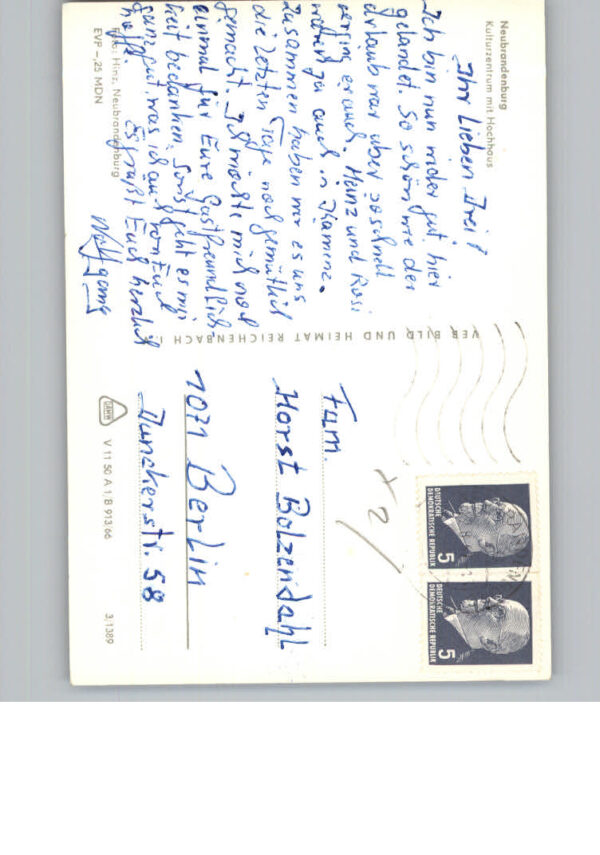 Neubrandenburg
Kulturzentrum mit Hochhaus
Ihr Lieben Drei!
Ich bin nun wider gut hier
gelandet. So schön wie der
Urlaub war aber so schnell
verging er auch. Heinz und Rosi
waren ja auch in
zusammen haben wir es uns
die letzten Tage noch gemütlich
gemacht. Ich möchte mich noch
einmal für Eure Gastfreundlich
keit bedanken. Sonst geht es mir
ganz gut, was ich auch von Euch
hoffe. Es grüßt Euch herzlich
Wolfgang
Foto: Hinz, Neubrandenburg
EVP –,25 MDN
VEB BILD UND HEIMAT REICHENBACH
Fam.
Horst Bolzendahl
1071 Berlin
Dunckerstr. 58
V 11 50 A 1/B 913/66
3/1389
DEUTSCHE
DEMOKRATISCHE REPUBLIK
5
DEUTSCHE
DEMOKRATISCHE REPUBLIK
5